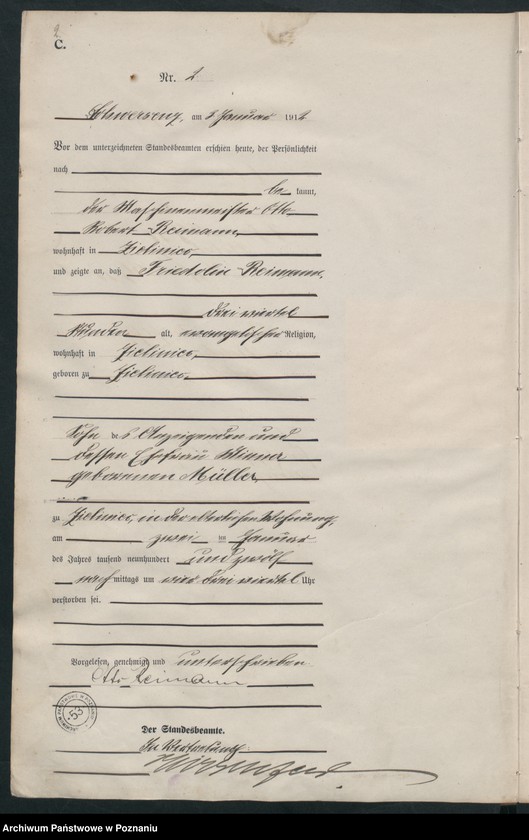 C.
Nr. 2
Schwersenz, am 3 Januar 1912
Vor dem unterzeichneten Standesbeamten erschien heute, der Persönlichkeit
nach
be kannt,
der Maschinenmeister Otto
Robert Reimann,
wohnhaft in Zieliniec,
und zeigte an, daß Fridolin Reimann,
drei viertel
Stunden alt, evangelischer Religion,
wohnhaft in Zieliniec,
geboren zu Zieliniec,
Sohn des Anzeigenden und
dessen Ehefrau
geborenen Müller,
zu Zieliniec, in der elterlichen Wohnung,
am zwei im Januar
des Jahres tausend neunhundert und zwölf
nach mittags um drei viertel Uhr
verstorben sei.
Vorgelesen, genehmigt und unterschrieben
Otto Reimann
Der Standesbeamte.
In Vertretung
53
Archiwum Państwowe w Poznaniu